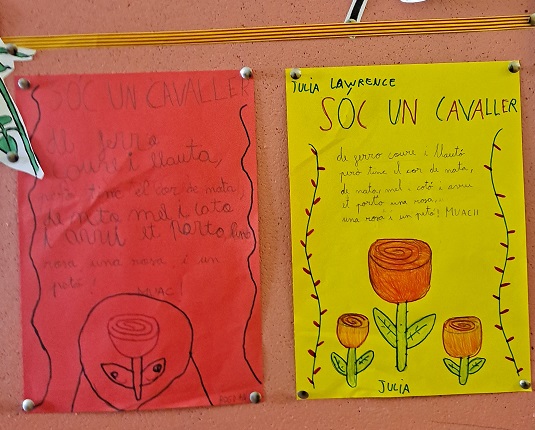 SOC UN CAVALLER
de ferro
coure i llauta,
però tinc el cor de mata,
de nata mel i coto
i avui et porto una
rosa una rosa i un
petó!
MUAC!
JULIA LAWRENCE
SÓC UN CAVALLER
de ferro coure i llautó
però tinc el cor de nata,
de nata, mel i cotó i avui
et porto una rosa...
una rosa i un petó! MUAC!!
JULIA